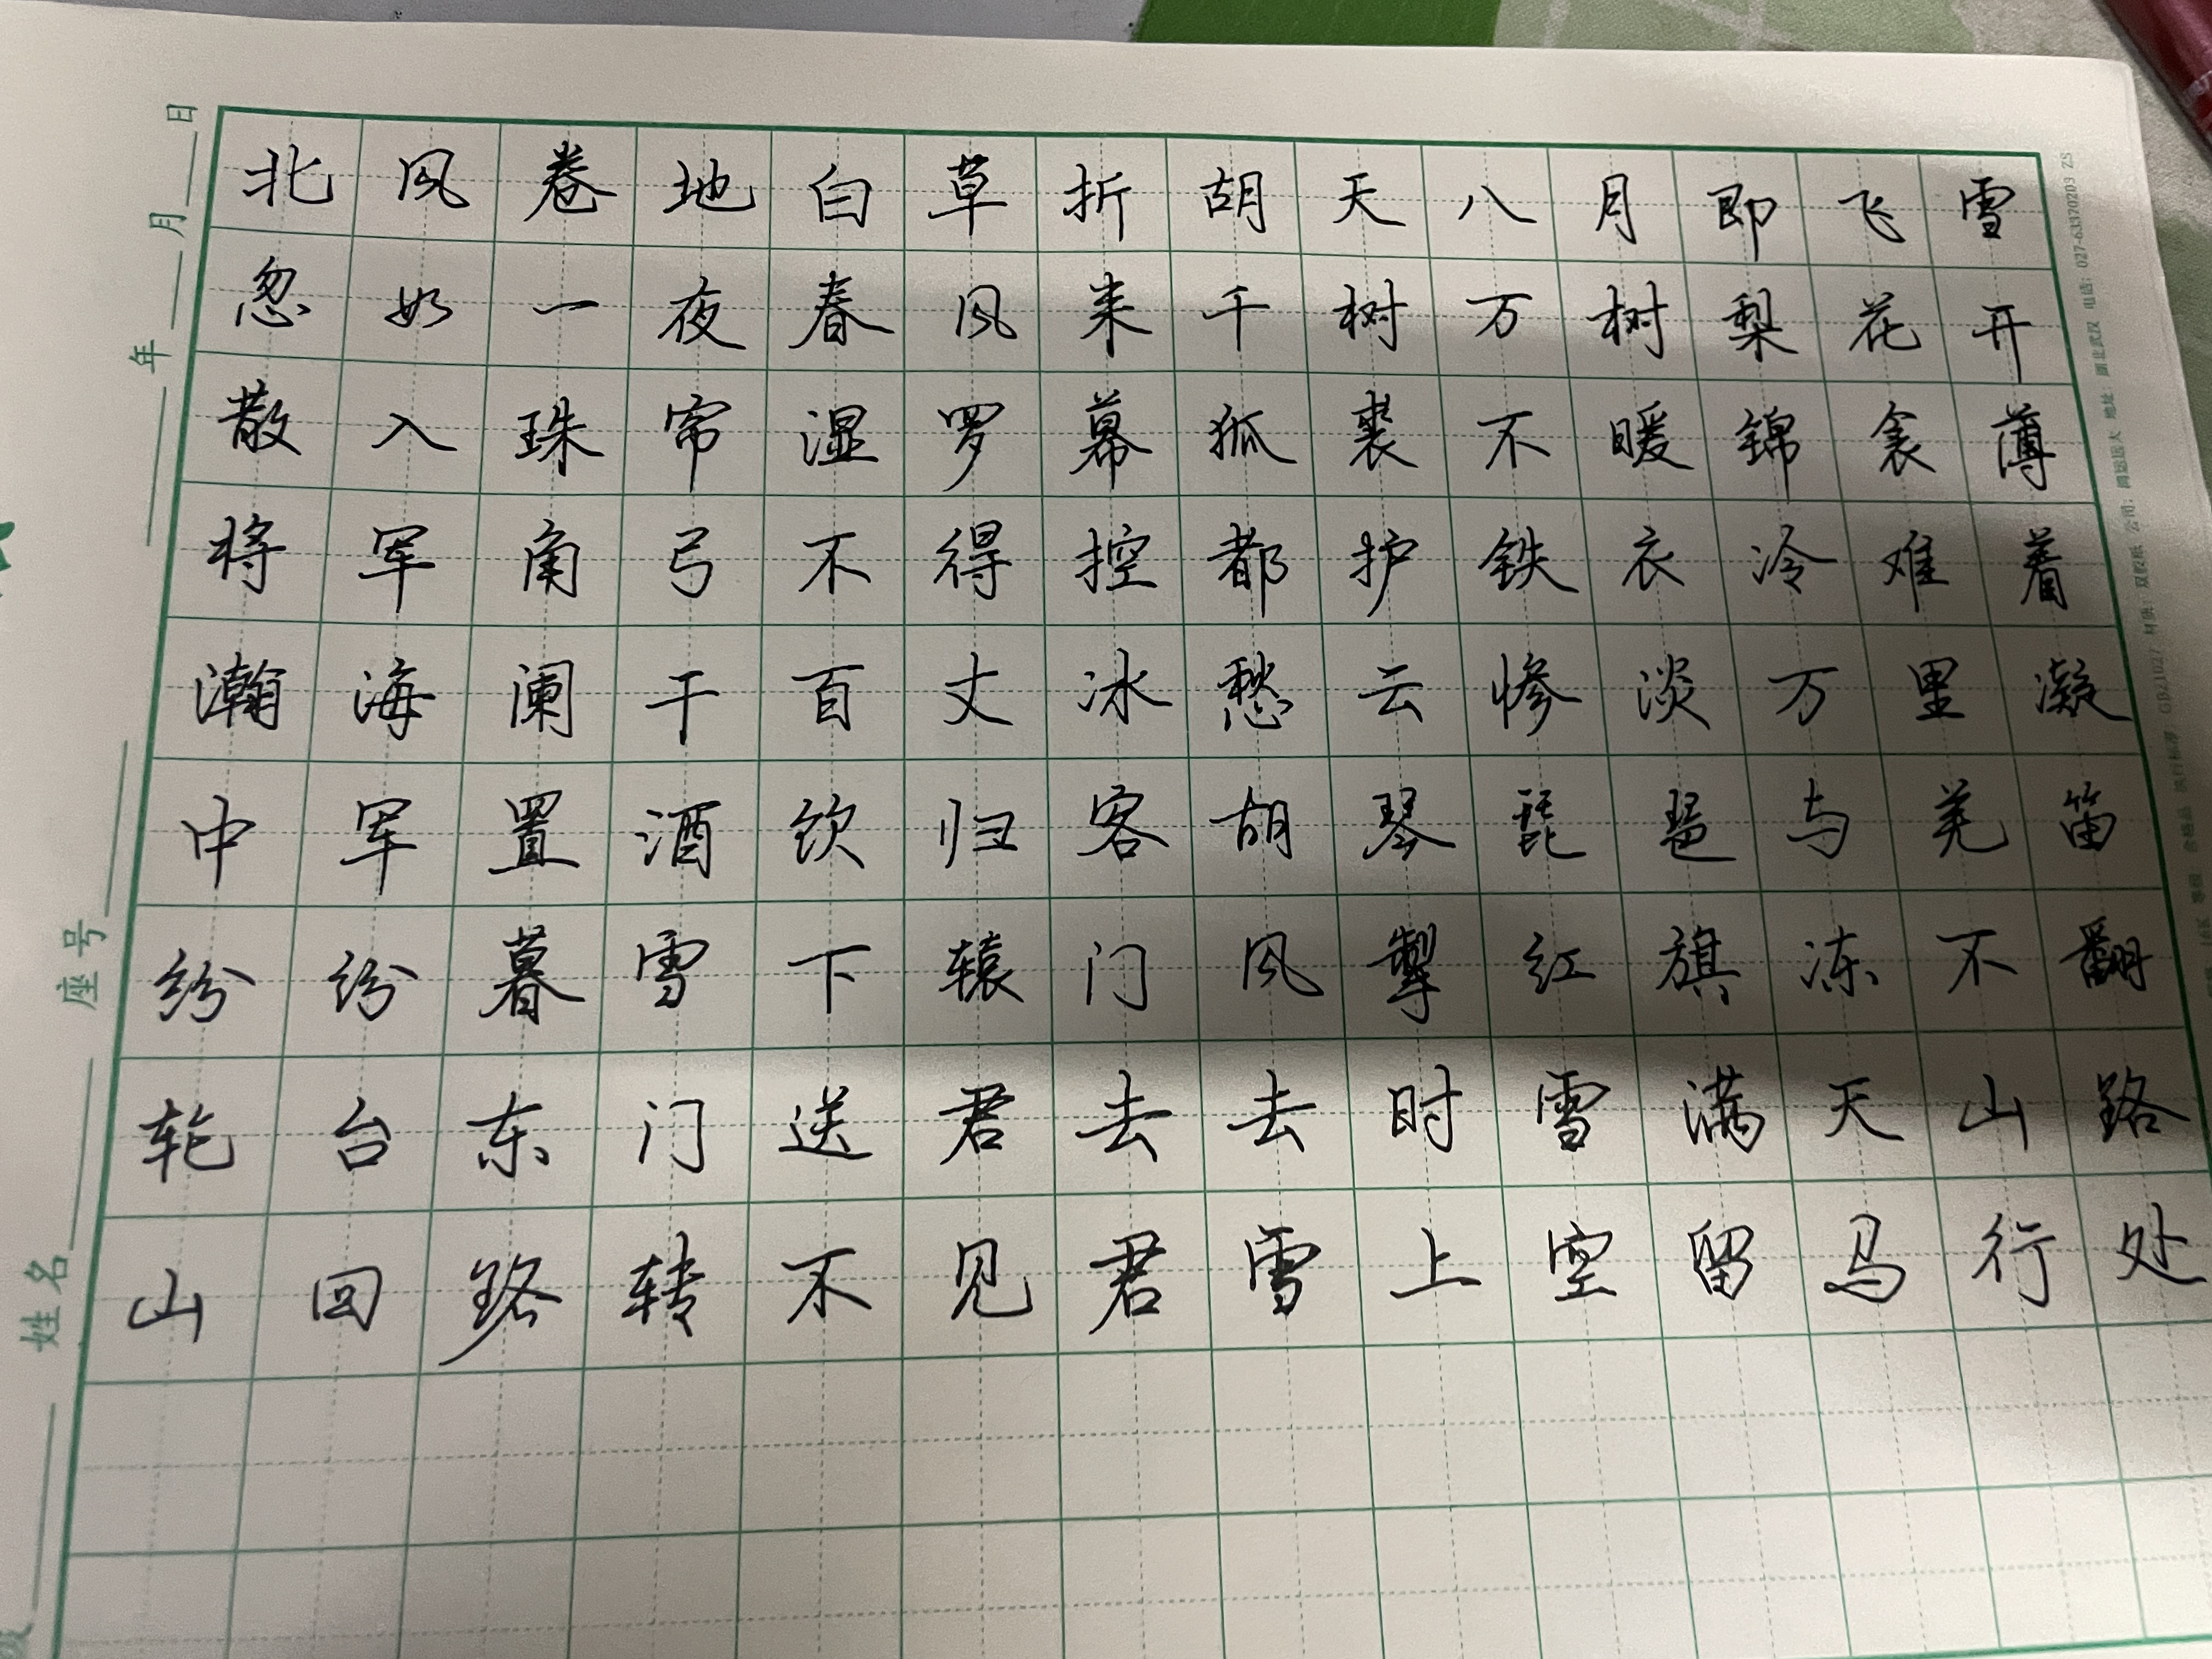 姓名 座号
年 月 日
北风卷地白草折胡天八月即飞雪
忽如一夜春风来千树万树梨花开
散入珠帘湿罗幕狐裘不暖锦衾薄
将军角弓不得控都护铁衣冷难着
瀚海阑干百丈冰愁云惨淡万里凝
中军置酒饮归客胡琴琵琶与羌笛
纷纷暮雪下辕门风掣红旗冻不翻
轮台东门送君去去时雪满天山路
山回路转不见君雪上空留马行处
16K 等级：合格品 执行标准：GB21027 材质：双胶纸 公司：鸿运远大 地址：湖北武汉 电话：027-63370203 ZS